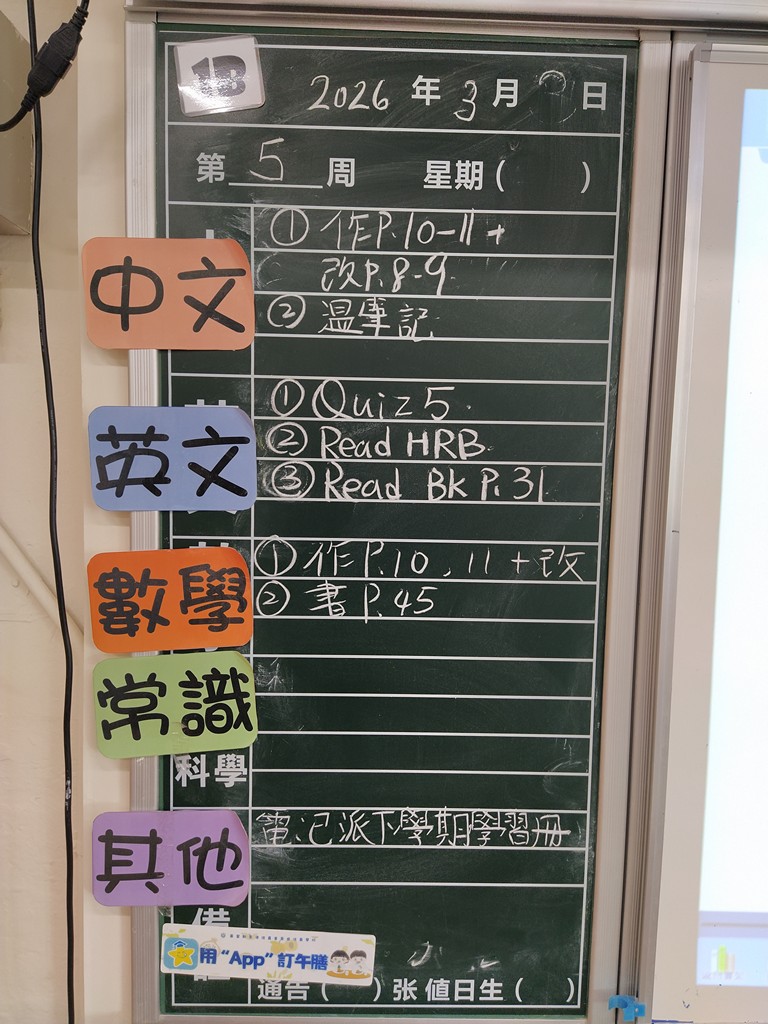 1B
2026 年 3 月 日
第 5 周 星期( )
中文
① 作P.10-11+
改P.8-9
② 温筆記
英文
① Quiz 5.
② Read HRB
③ Read BK P.31
數學
① 作P.10, 11+改
② 書P.45
常識
科學
其他
電:已派下學期學習冊
備
用“App”訂午膳
通告( )张 值日生( )